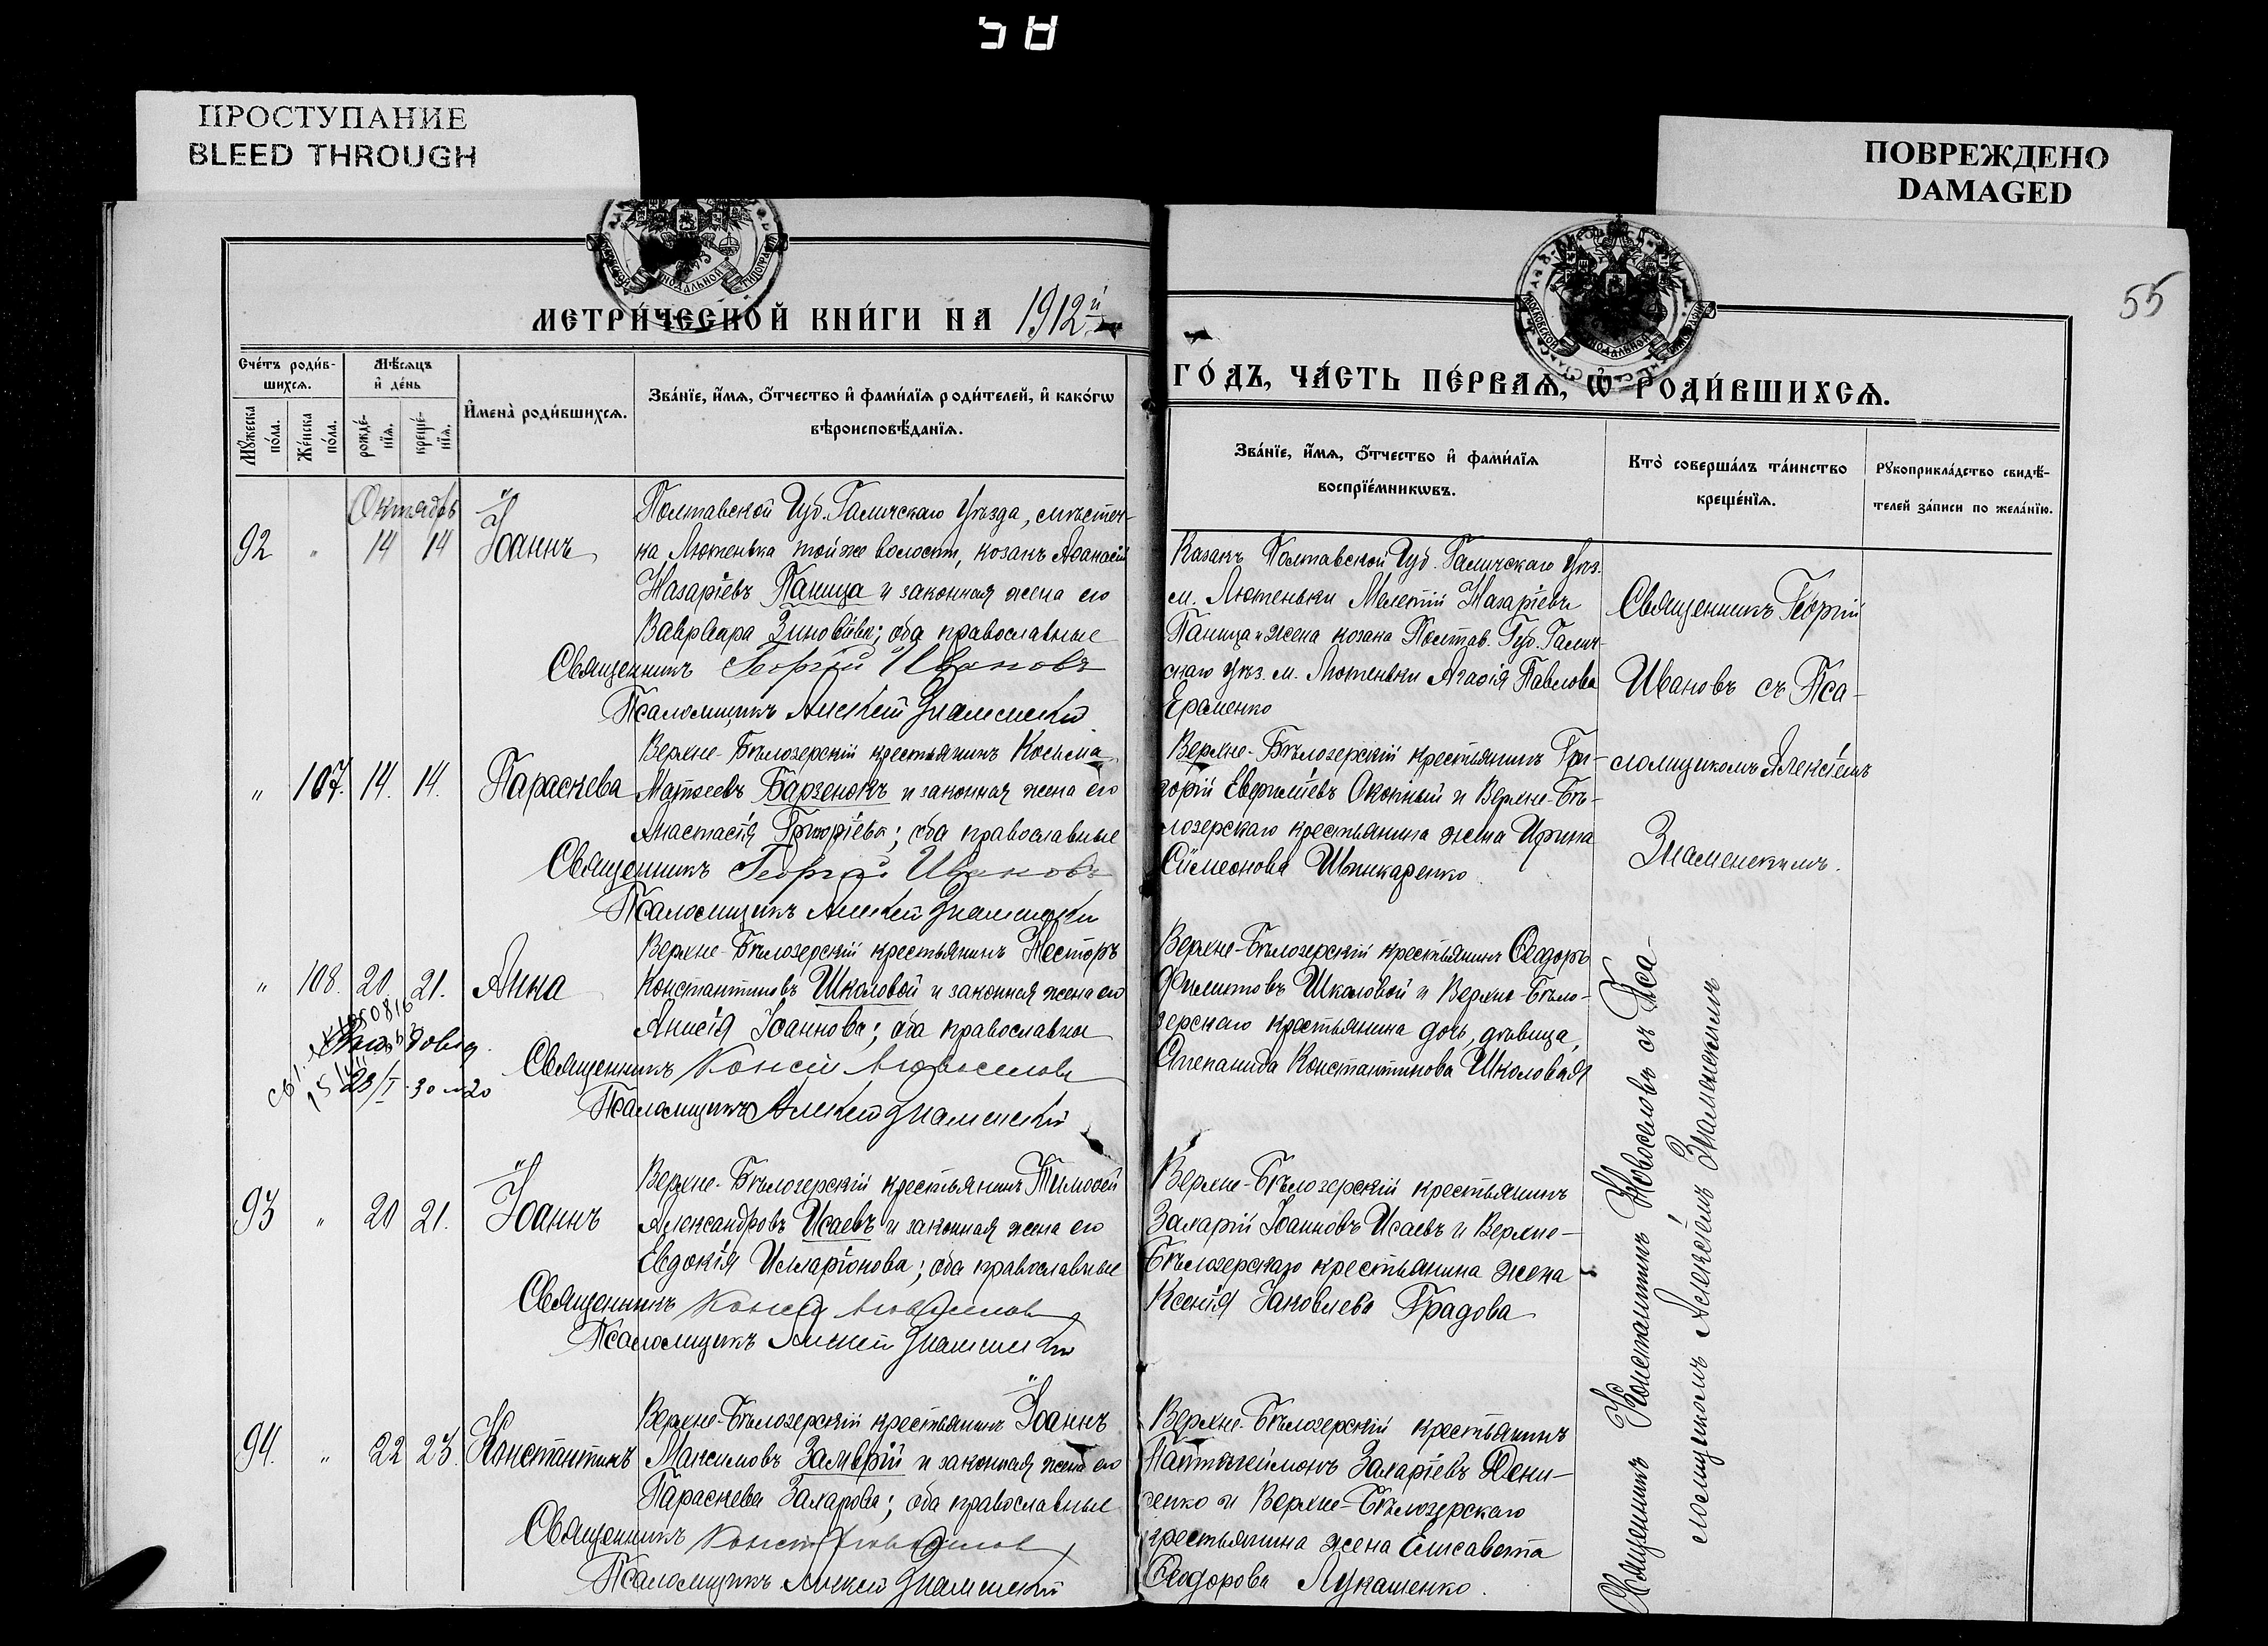 58
ПРОСТУПАНИЕ
BLEED THROUGH
ПОВРЕЖДЕНО
DAMAGED
55
МЕТРИ́ЧЕСКОЙ КНИ́ГИ НА 1912й
ГО́ДЪ, ЧА́СТЬ ПЕ́РВАѦ, Ѡ҆ РОДИ́ВШИХСѦ.
Сче́тъ роди́в-
шихсѧ.
Мꙋжеска по́ла.
Же́нска по́ла.
Мѣ́сѧцъ
и҆ де́нь
рожде́-
нїѧ.
креще́-
нїѧ.
И҆мена̀ роди́вшихсѧ.
Зва́нїе, и҆́мѧ, ѻ҆́тчество и҆ фами́лїѧ роди́телей, и҆ како́гѡ
вѣроисповѣ́данїѧ.
Зва́нїе, и҆́мѧ, ѻ҆́тчество и҆ фами́лїѧ
воспрїе́мникѡвъ.
Кто̀ соверша́лъ та́инство
креще́нїѧ.
Рꙋкоприкла́дство свидѣ́-
телей за́писи по жела́нїю.
Октябрь
92 " 14 14 Іоаннъ
Полтавской Губ. Гадичскаго Уѣзда, мѣстеч-
ка Лютенька тойже волости, козакъ Аѳанасій
Назаріевъ Паница и законная жена его
Варвара Зиновіева; оба православные
Священникъ Георгій Ивановъ
Псаломщикъ Алексѣй Знаменскій
Козакъ Полтавской Губ. Гадичскаго Уѣз.
м. Лютеньки Мелетій Назаріевъ
Паница и жена козака Полтав. Губ. Гадич-
скаго Уѣз. м. Лютеньки Агафія Павлова
Ераменко
Священникъ Георгій
Ивановъ съ Пса-
ломщикомъ Алексѣемъ
Знаменскимъ.
" 107. 14. 14. Параскева
Верхне-Бѣлозерскій крестьянинъ Косьма
Матѳеевъ Барзенокъ и законная жена его
Анастасія Григоріева; оба православные
Священникъ Георгій Ивановъ
Псаломщикъ Алексѣй Знаменскій
Верхне-Бѣлозерскій крестьянинъ Гри-
горій Евфиміевъ Окопный и Верхне-Бѣ-
лозерскаго крестьянина жена Ирина
Сѵмеонова Шинкаренко
" 108. 20. 21. Анна
Верхне-Бѣлозерскій крестьянинъ Несторъ
Константиновъ Школовой и законная жена его
Анисія Іоаннова; оба православные
Священникъ Конст Новоселовъ
Псаломщикъ Алексѣй Знаменскій
23/I 30 м20
Верхне-Бѣлозерскій крестьянинъ Ѳеодоръ
Филиповъ Школовой и Верхне-Бѣло-
зерскаго крестьянина дочь, дѣвица,
Степанида Константинова Школовая
93 " 20 21. Іоаннъ
Верхне-Бѣлозерскій крестьянинъ Тимоѳей
Александровъ Исаевъ и законная жена его
Евдокія Илларіонова; оба православные
Священникъ Конст Новоселовъ
Псаломщикъ Алексѣй Знаменскій
Верхне-Бѣлозерскій крестьянинъ
Захарій Іоанновъ Исаевъ и Верхне-
Бѣлозерскаго крестьянина жена
Ксенія Іаковлева Градова
94. " 22 23. Константинъ
Верхне-Бѣлозерскій крестьянинъ Іоаннъ
Максимовъ Замврій и законная жена его
Параскева Захарова; оба православные
Священникъ Конст Новоселовъ
Псаломщикъ Алексѣй Знаменскій
Верхне-Бѣлозерскій крестьянинъ
Пантелеймонъ Захаріевъ Дени-
сенко и Верхне-Бѣлозерскаго
крестьянина жена Елисавета
Ѳеодорова Лукашенко.
Священникъ Константинъ Новоселовъ съ Пса-
ломщикомъ Алексѣемъ Знаменскимъ